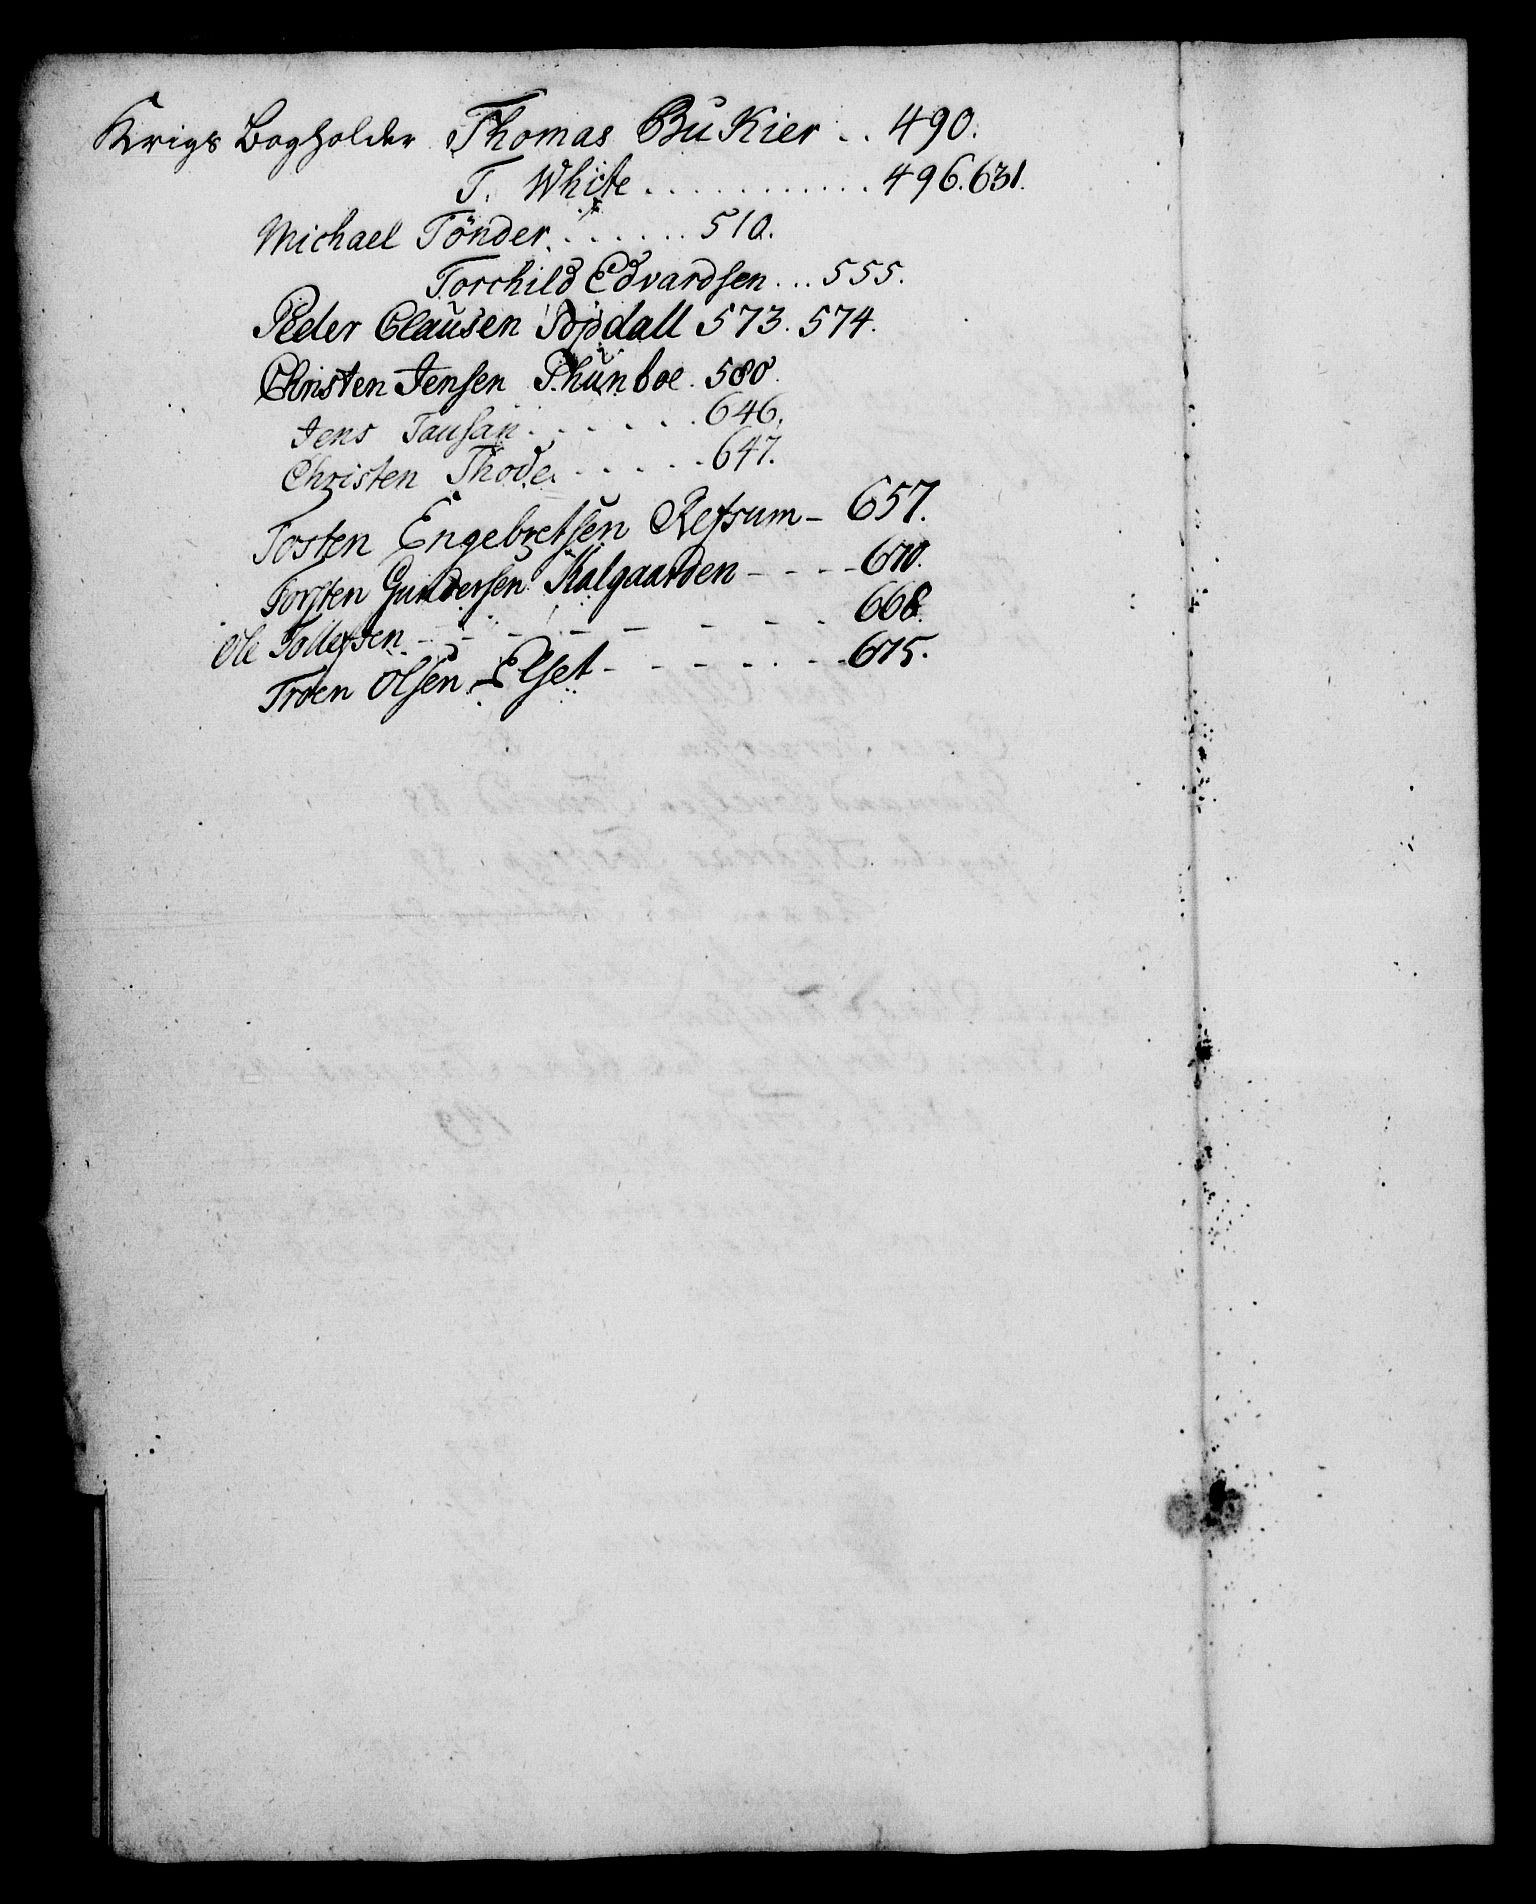 Krigs Bogholder Thomas Bu Kier . . 490.
T. White . . . . . . . . . . . 496. 631.
Michael Tönder . . . . . . 510.
Torchild Edvardsen . . . 555.
Peder Clausen Topdall 573. 574.
Christen Jensen Thunboe . 580.
Jens Tausan . . . . . . 646.
Christen Thode . . . . . . 647.
Tosten Engebretsen Refsum - 657.
Torsten Gundersen Kalgaarden - - - - 670.
Ole Tollefsen - - - - - - - - 668.
Troen Olsen Elset - - - - - - - 675.